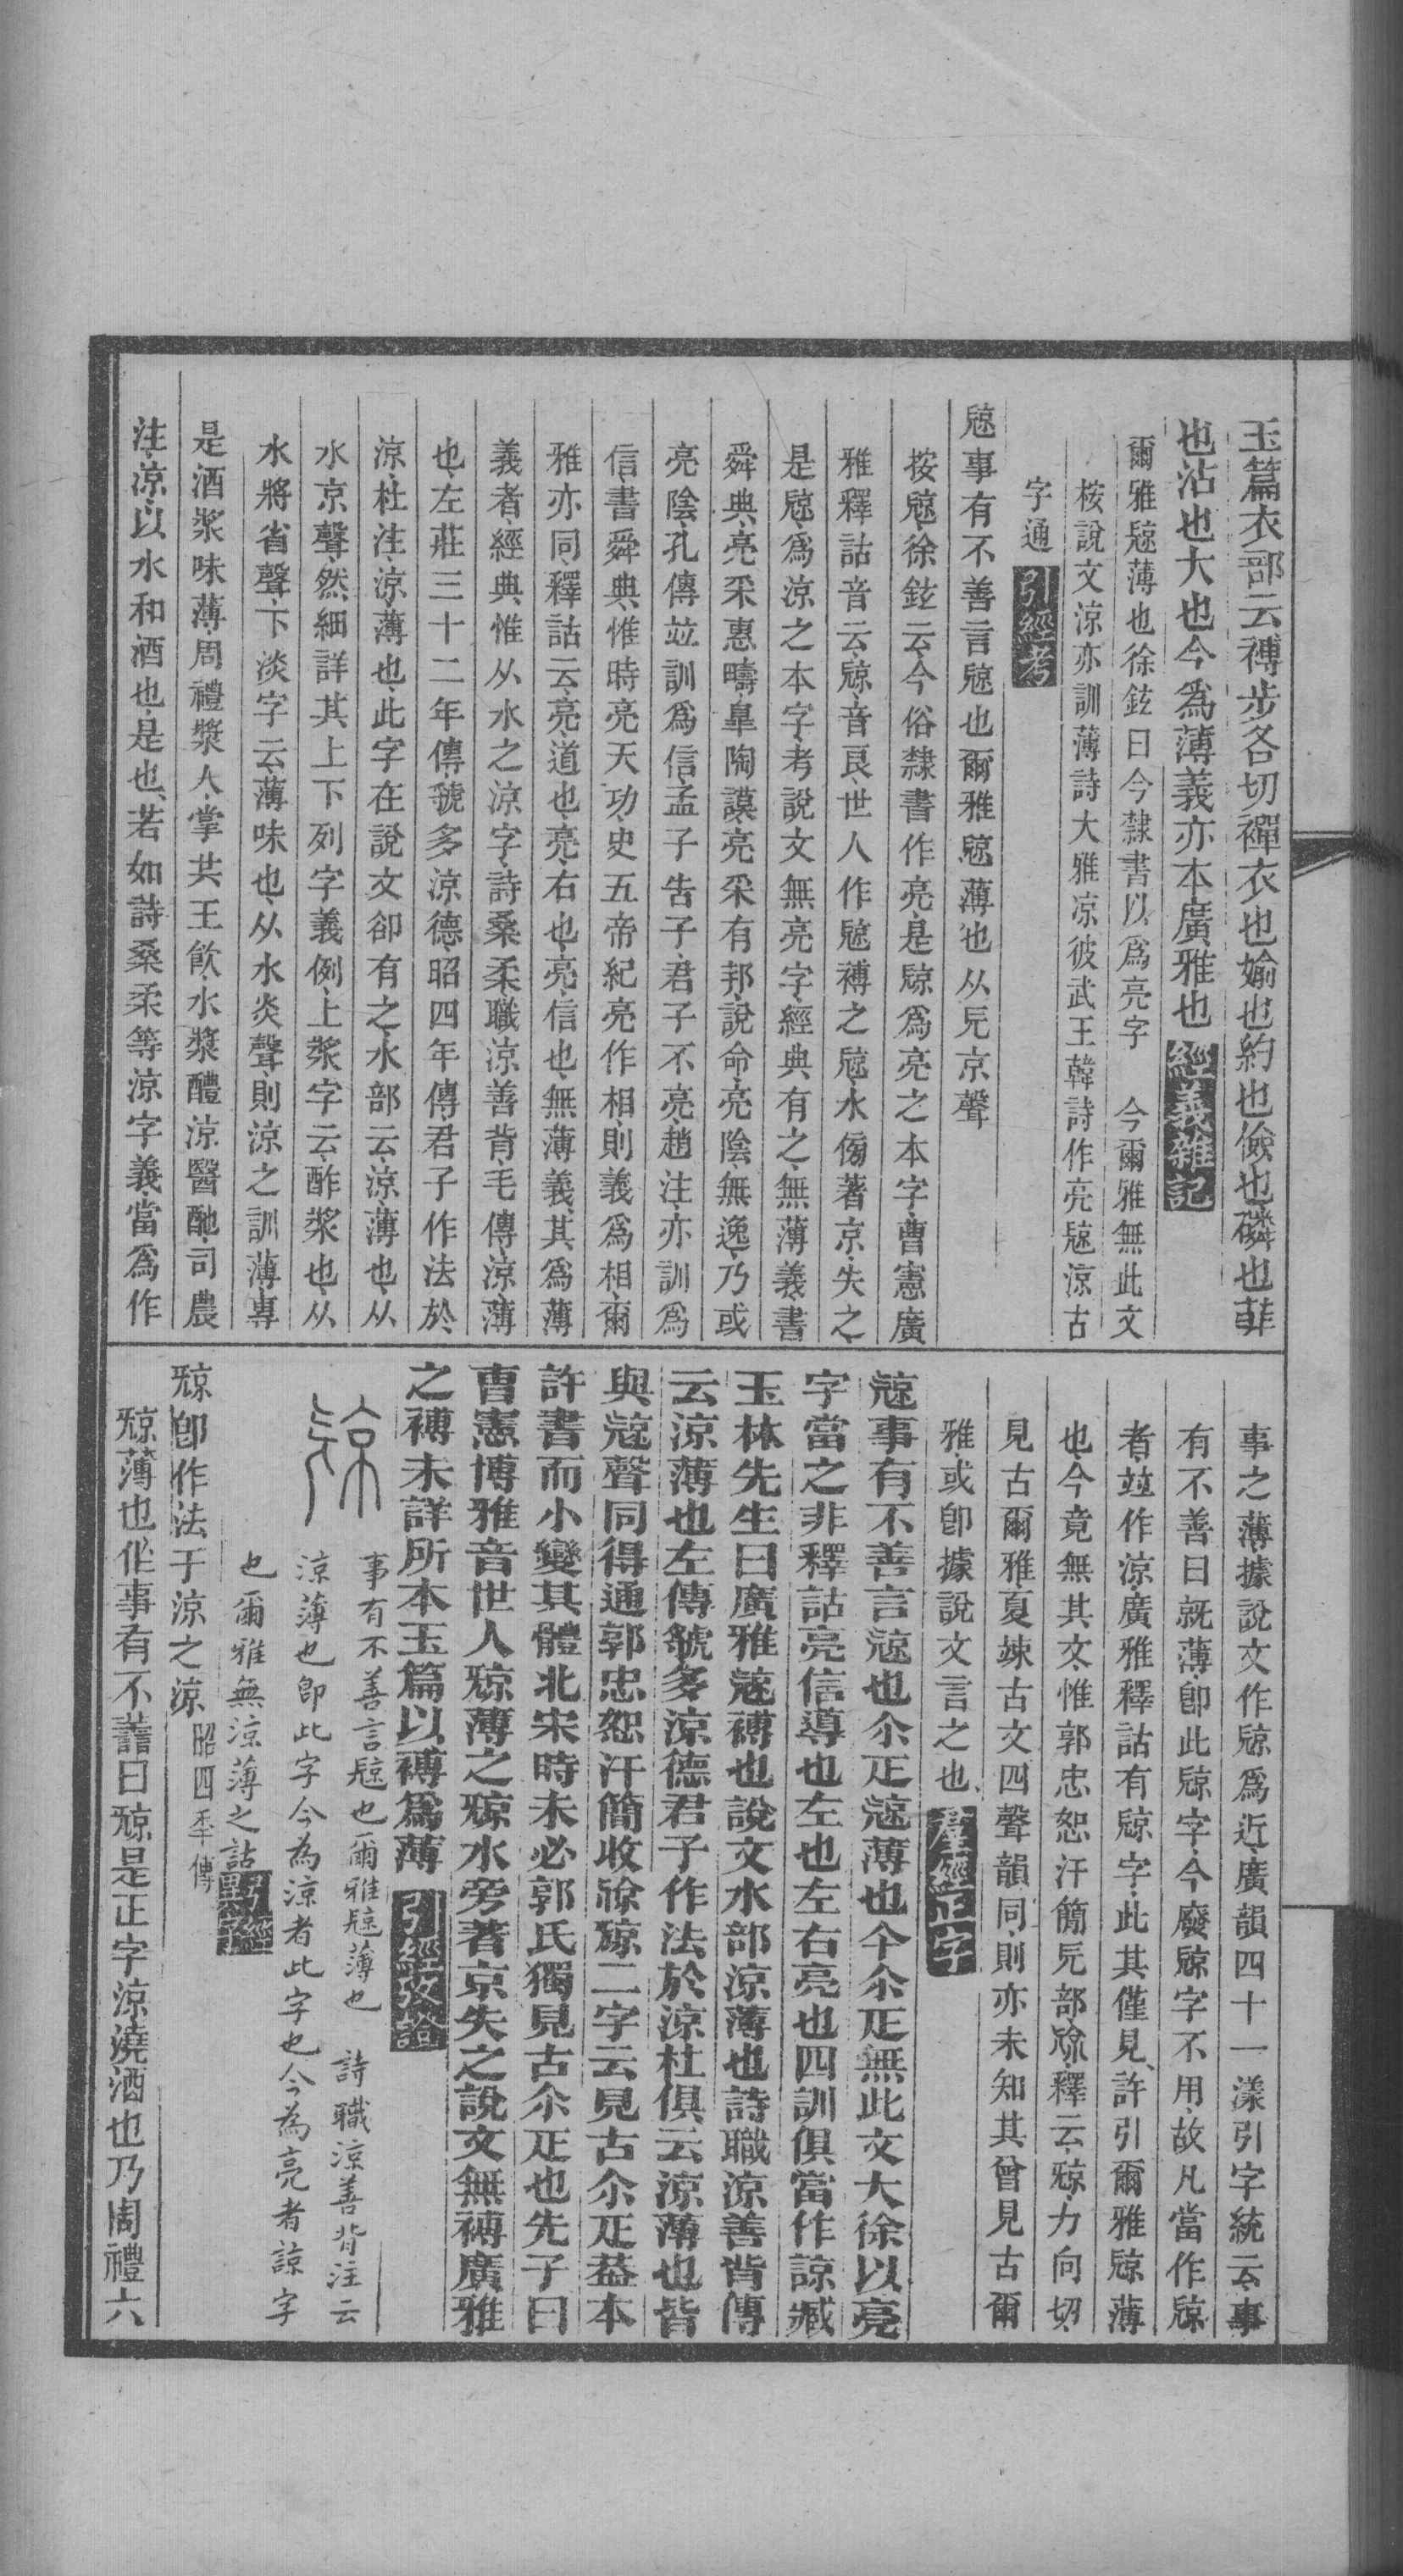 玉篇衣部云䙏步各切襌衣也婾也約也儉也磷也菲
也沾也大也今爲薄義亦本廣雅也經義雜記
爾雅㹁薄也徐鉉曰今隸書以爲亮字　今爾雅無此文
桉說文涼亦訓薄詩大雅涼彼武王韓詩作亮㹁涼古
字通引經考
㹁事有不善言㹁也爾雅㹁薄也从旡京聲
按㹁徐鉉云今俗隸書作亮是㹁爲亮之本字曹憲廣
雅釋詁音云㹁音良世人作㹁䙏之㹁水傍著京失之
是㹁爲涼之本字考說文無亮字經典有之無薄義書
舜典亮采惠疇臯陶謨亮采有邦說命亮陰無逸乃或
亮陰孔傳竝訓爲信孟子告子君子不亮趙注亦訓爲
信書舜典惟時亮天功史五帝紀亮作相則義爲相爾
雅亦同釋詁云亮道也亮右也亮信也無薄義其爲薄
義者經典惟从水之涼字詩桑柔職涼善背毛傳涼薄
也左莊三十二年傳虢多涼德昭四年傳君子作法於
涼杜注涼薄也此字在說文卻有之水部云涼薄也从
水京聲然細詳其上下列字義例上漿字云酢漿也从
水將省聲下淡字云薄味也从水炎聲則涼之訓薄專
是酒漿味薄周禮漿人掌共王飮水漿醴涼醫酏司農
注涼以水和酒也是也若如詩桑柔等涼字義當爲作
事之薄據說文作㹁爲近廣韻四十一漾引字統云事
有不善曰㹁薄卽此㹁字今廢㹁字不用故凡當作㹁
者竝作涼廣雅釋詁有㹁字此其僅見許引爾雅㹁薄
也今竟無其文惟郭忠恕汗簡旡部釋云㹁力向切
見古爾雅夏竦古文四聲韻同則亦未知其曾見古爾
雅或卽據說文言之也羣經正字
㹁事有不善言㹁也尒疋㹁薄也今尒疋無此文大徐以亮
字當之非釋詁亮信導也左也左右亮也四訓俱當作諒臧
玉林先生曰廣雅㹁䙏也說文水部涼薄也詩職涼善背傳
云涼薄也左傳虢多涼德君子作法於涼杜俱云涼薄也皆
與㹁聲同得通郭忠恕汗簡收二字云見古尒疋葢本
許書而小變其體北宋時未必郭氏獨見古尒疋也先子曰
曹憲博雅音世人㹁薄之㹁水旁著京失之說文無䙏廣雅
之䙏未詳所本玉篇以䙏爲薄引經攷證
㹁
事有不善言㹁也爾雅㹁薄也　詩職涼善背注云
涼薄也卽此字今為涼者此字也今為亮者諒字
也爾雅無涼薄之詁
㹁卽作法于涼之涼昭四年傳
㹁薄也作事有不善曰㹁是正字涼澆酒也乃周禮六